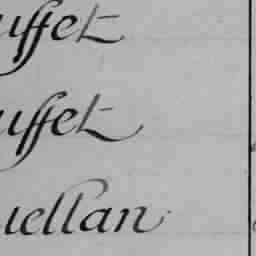 uffet
uffet
uellan